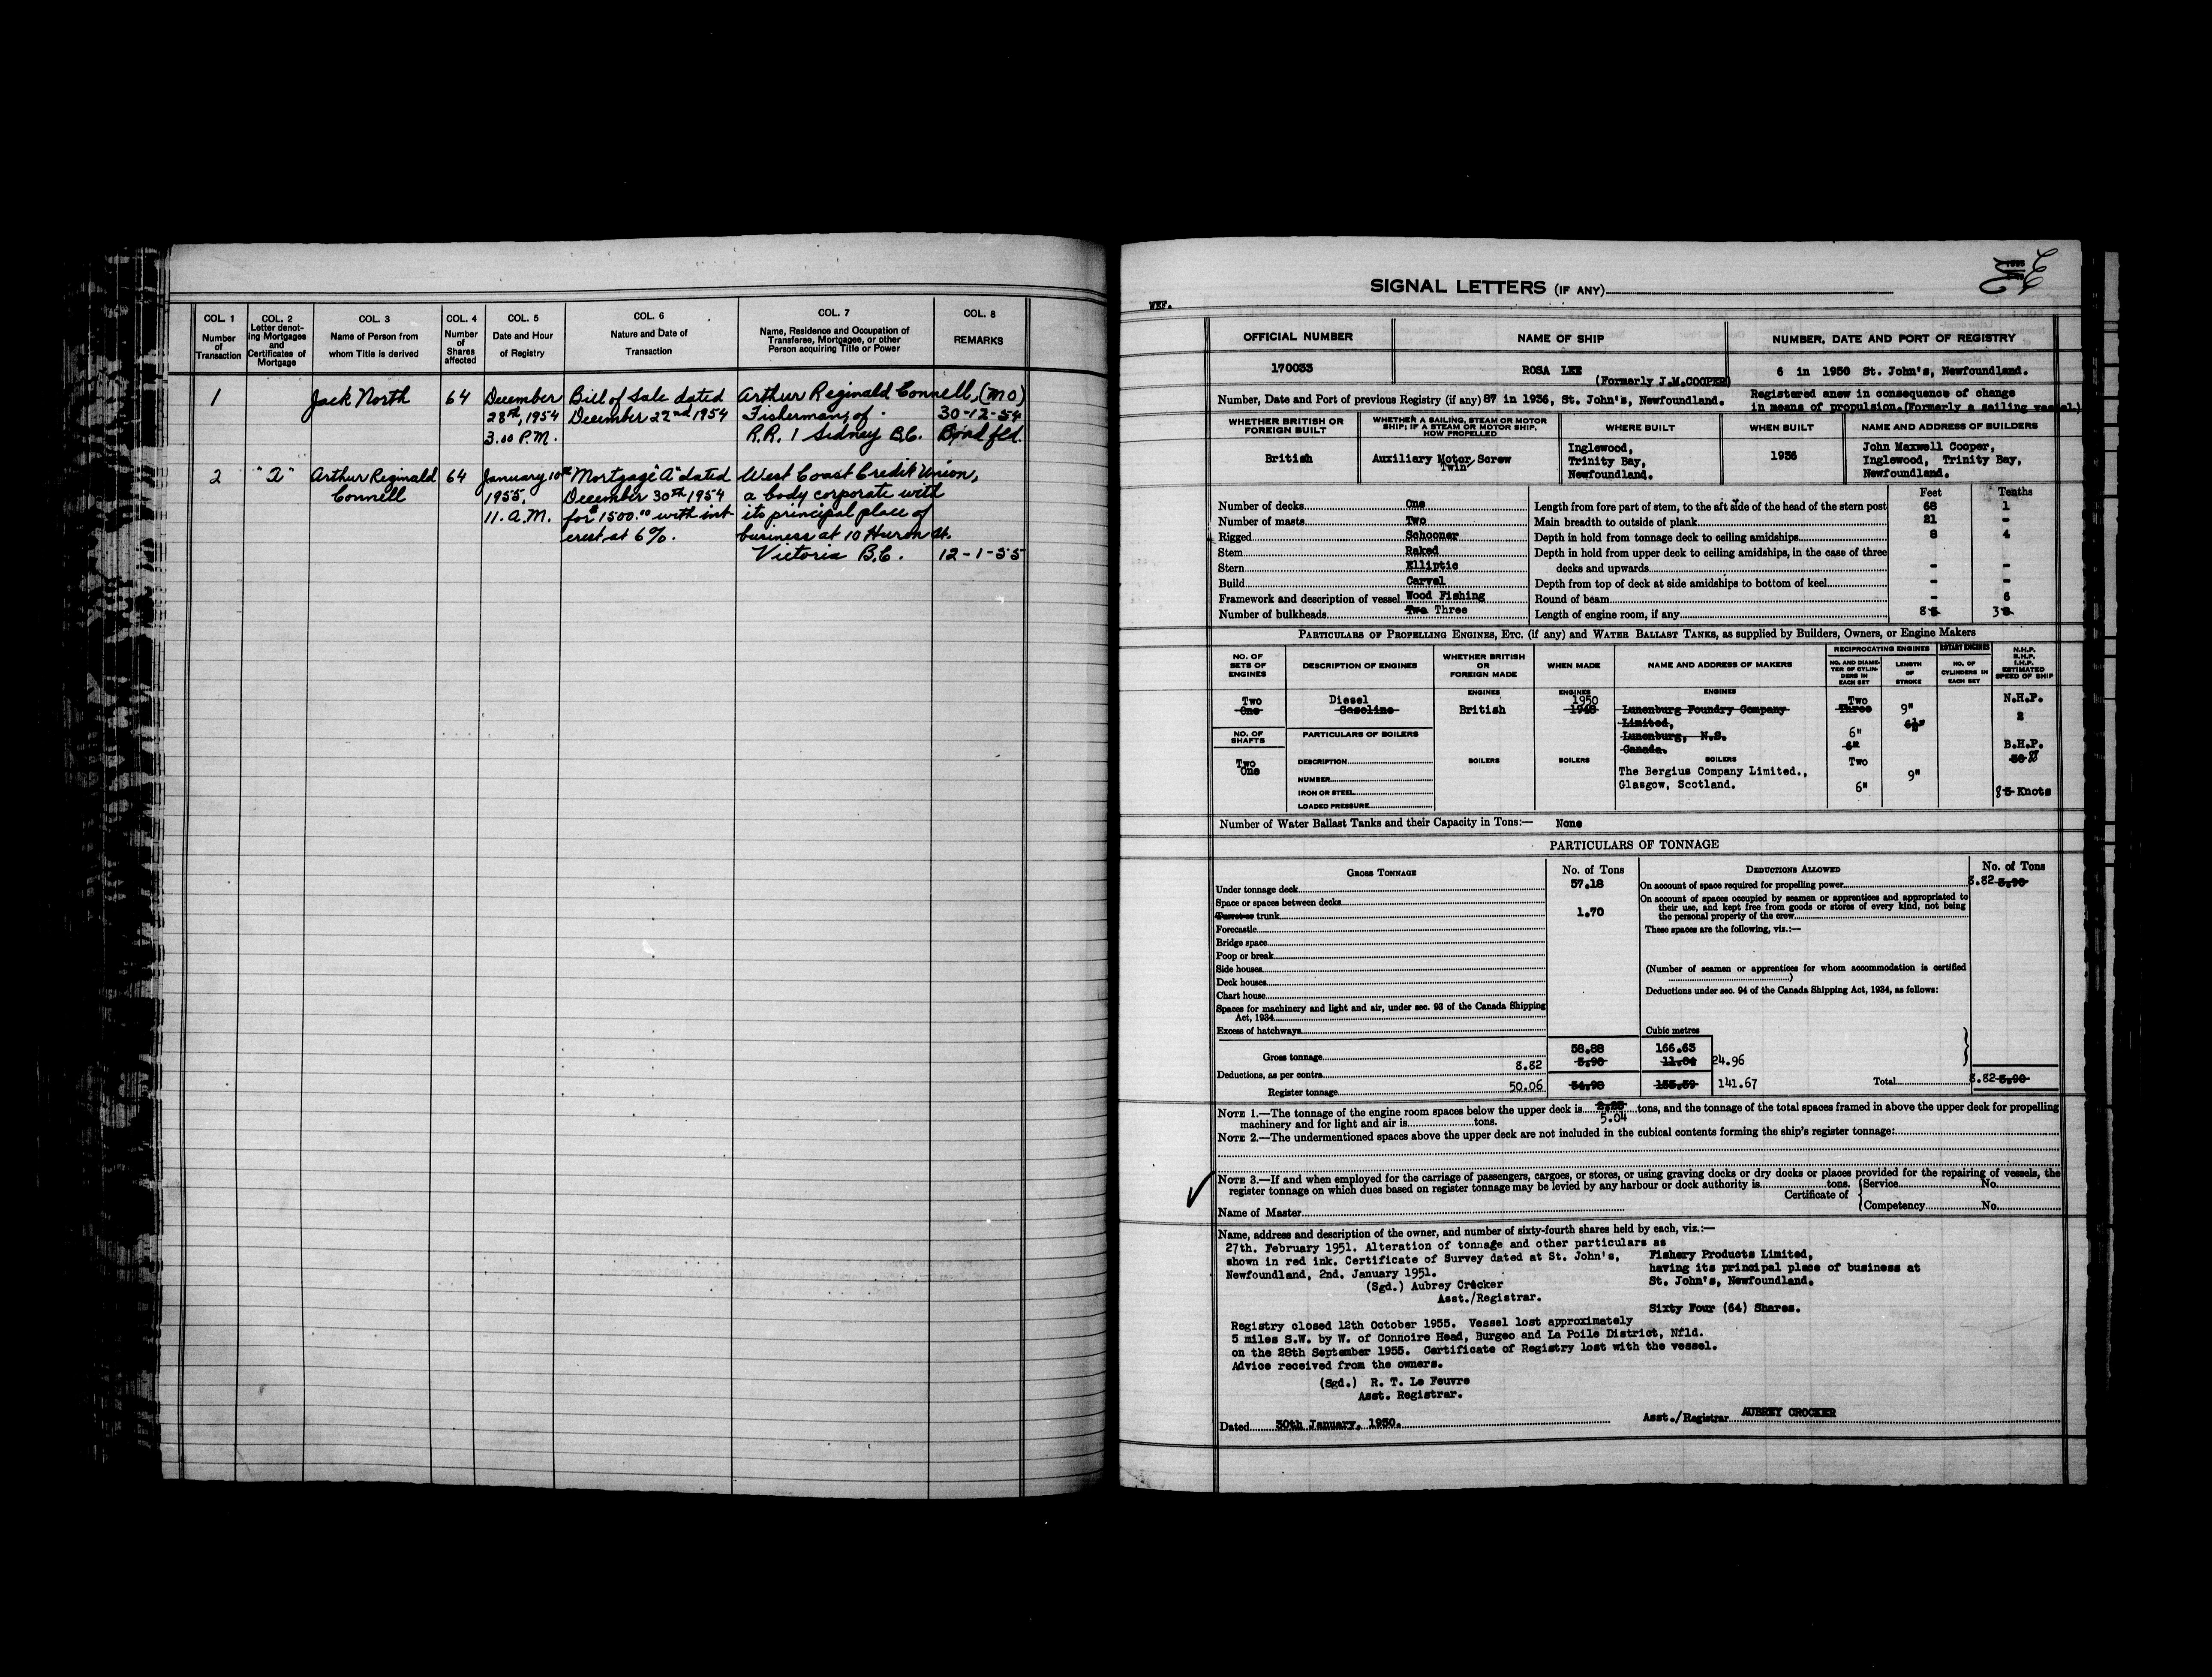 COL. 1 Number of Transaction
COL. 2 Letter denoting Mortgages and Certificates of Mortgage
COL. 3 Name of Person from whom Title is derived
COL. 4 Number of Shares affected
COL. 5 Date and Hour of Registry
COL. 6 Nature and Date of Transaction
COL. 7 Name, Residence and Occupation of Transferee, Mortgagee, or other Person acquiring Title or Power
COL. 8 REMARKS
1 Jack North 64 December Bill of Sale dated Arthur Reginald Connell, (MO)
28th, 1954 December 22nd 1954 Fisherman, of 30-12-54
3.00 P.M. R.R. 1 Sidney B.C. Bond fld.
2 "A" Arthur Reginald 64 January 10th Mortgage "A" dated West Coast Credit Union,
Connell 1955, December 30th 1954 a body corporate with
11. A.M. for $1500.00 with int- its principal place of
erest at 6%. business at 10 Huron St.
Victoria B.C. 12-1-55
SIGNAL LETTERS (IF ANY)
WEF.
OFFICIAL NUMBER NAME OF SHIP NUMBER, DATE AND PORT OF REGISTRY
170033 ROSA LEE 6 in 1950 St. John's, Newfoundland.
(Formerly J.M.COOPER)
Number, Date and Port of previous Registry (if any) 87 in 1936, St. John's, Newfoundland. Registered anew in consequence of change
in means of propulsion.(Formerly a sailing vessel.)
WHETHER BRITISH OR FOREIGN BUILT
WHETHER A SAILING, STEAM OR MOTOR SHIP; IF A STEAM OR MOTOR SHIP, HOW PROPELLED
WHERE BUILT WHEN BUILT NAME AND ADDRESS OF BUILDERS
British Auxiliary Motor Screw
Twin
Inglewood,
Trinity Bay,
Newfoundland.
1936
John Maxwell Cooper,
Inglewood, Trinity Bay,
Newfoundland.
Feet Tenths
Number of decks One Length from fore part of stem, to the aft side of the head of the stern post 68 1
Number of masts Two Main breadth to outside of plank 21 -
Rigged Schooner Depth in hold from tonnage deck to ceiling amidships 8 4
Stem Raked Depth in hold from upper deck to ceiling amidships, in the case of three
Stern Elliptic decks and upwards - -
Build Carvel Depth from top of deck at side amidships to bottom of keel - -
Framework and description of vessel Wood Fishing Round of beam - 6
Number of bulkheads Two Three Length of engine room, if any 8 3
PARTICULARS OF PROPELLING ENGINES, ETC. (if any) and WATER BALLAST TANKS, as supplied by Builders, Owners, or Engine Makers
NO. OF SETS OF ENGINES
DESCRIPTION OF ENGINES
WHETHER BRITISH OR FOREIGN MADE
WHEN MADE
NAME AND ADDRESS OF MAKERS
RECIPROCATING ENGINES
NO. AND DIAMETER OF CYLINDERS IN EACH SET
LENGTH OF STROKE
ROTARY ENGINES
NO. OF CYLINDERS IN EACH SET
N.H.P. B.H.P. I.H.P. ESTIMATED SPEED OF SHIP
ENGINES ENGINES ENGINES
Two Diesel 1950 Two N.H.P.
One Gasoline British 1948 Lunenburg Foundry Company Three 9"
Limited, 6½" 2
Lunenburg, N.S. 6"
Canada. 6" B.H.P.
NO. OF SHAFTS PARTICULARS OF BOILERS
Two
One
DESCRIPTION BOILERS BOILERS BOILERS Two
NUMBER The Bergius Company Limited., 9"
IRON OR STEEL Glasgow, Scotland. 6"
LOADED PRESSURE 8 Knots
Number of Water Ballast Tanks and their Capacity in Tons:— None
PARTICULARS OF TONNAGE
GROSS TONNAGE No. of Tons DEDUCTIONS ALLOWED No. of Tons
Under tonnage deck 57.18 On account of space required for propelling power 8.82 5.90
Space or spaces between decks On account of spaces occupied by seamen or apprentices and appropriated to
their use, and kept free from goods or stores of every kind, not being
Turret or trunk 1.70 the personal property of the crew
Forecastle These spaces are the following, viz.:—
Bridge space
Poop or break
Side houses (Number of seamen or apprentices for whom accommodation is certified
Deck houses )
Chart house Deductions under sec. 94 of the Canada Shipping Act, 1934, as follows:
Spaces for machinery and light and air, under sec. 93 of the Canada Shipping
Act, 1934
Excess of hatchways Cubic metres
Gross tonnage 58.88 166.63
8.82 3.90 11.04 24.96
Deductions, as per contra
Register tonnage 50.06 54.98 155.59 141.67 Total 8.82 3.90
NOTE 1.—The tonnage of the engine room spaces below the upper deck is 5.04 tons, and the tonnage of the total spaces framed in above the upper deck for propelling
machinery and for light and air is tons.
NOTE 2.—The undermentioned spaces above the upper deck are not included in the cubical contents forming the ship's register tonnage:
NOTE 3.—If and when employed for the carriage of passengers, cargoes, or stores, or using graving docks or dry docks or places provided for the repairing of vessels, the
register tonnage on which dues based on register tonnage may be levied by any harbour or dock authority is tons.
Certificate of Service No.
Competency No.
Name of Master
Name, address and description of the owner, and number of sixty-fourth shares held by each, viz.:—
27th. February 1951. Alteration of tonnage and other particulars as
shown in red ink. Certificate of Survey dated at St. John's,
Newfoundland, 2nd. January 1951.
(Sgd.) Aubrey Crocker
Asst./Registrar.
Fishery Products Limited,
having its principal place of business at
St. John's, Newfoundland.
Sixty Four (64) Shares.
Registry closed 12th October 1955. Vessel lost approximately
5 miles S.W. by W. of Connoire Head, Burgeo and La Poile District, Nfld.
on the 28th September 1955. Certificate of Registry lost with the vessel.
Advice received from the owners.
(Sgd.) R. T. Le Feuvre
Asst. Registrar.
Dated 30th January. 1950. Asst./Registrar AUBREY CROCKER